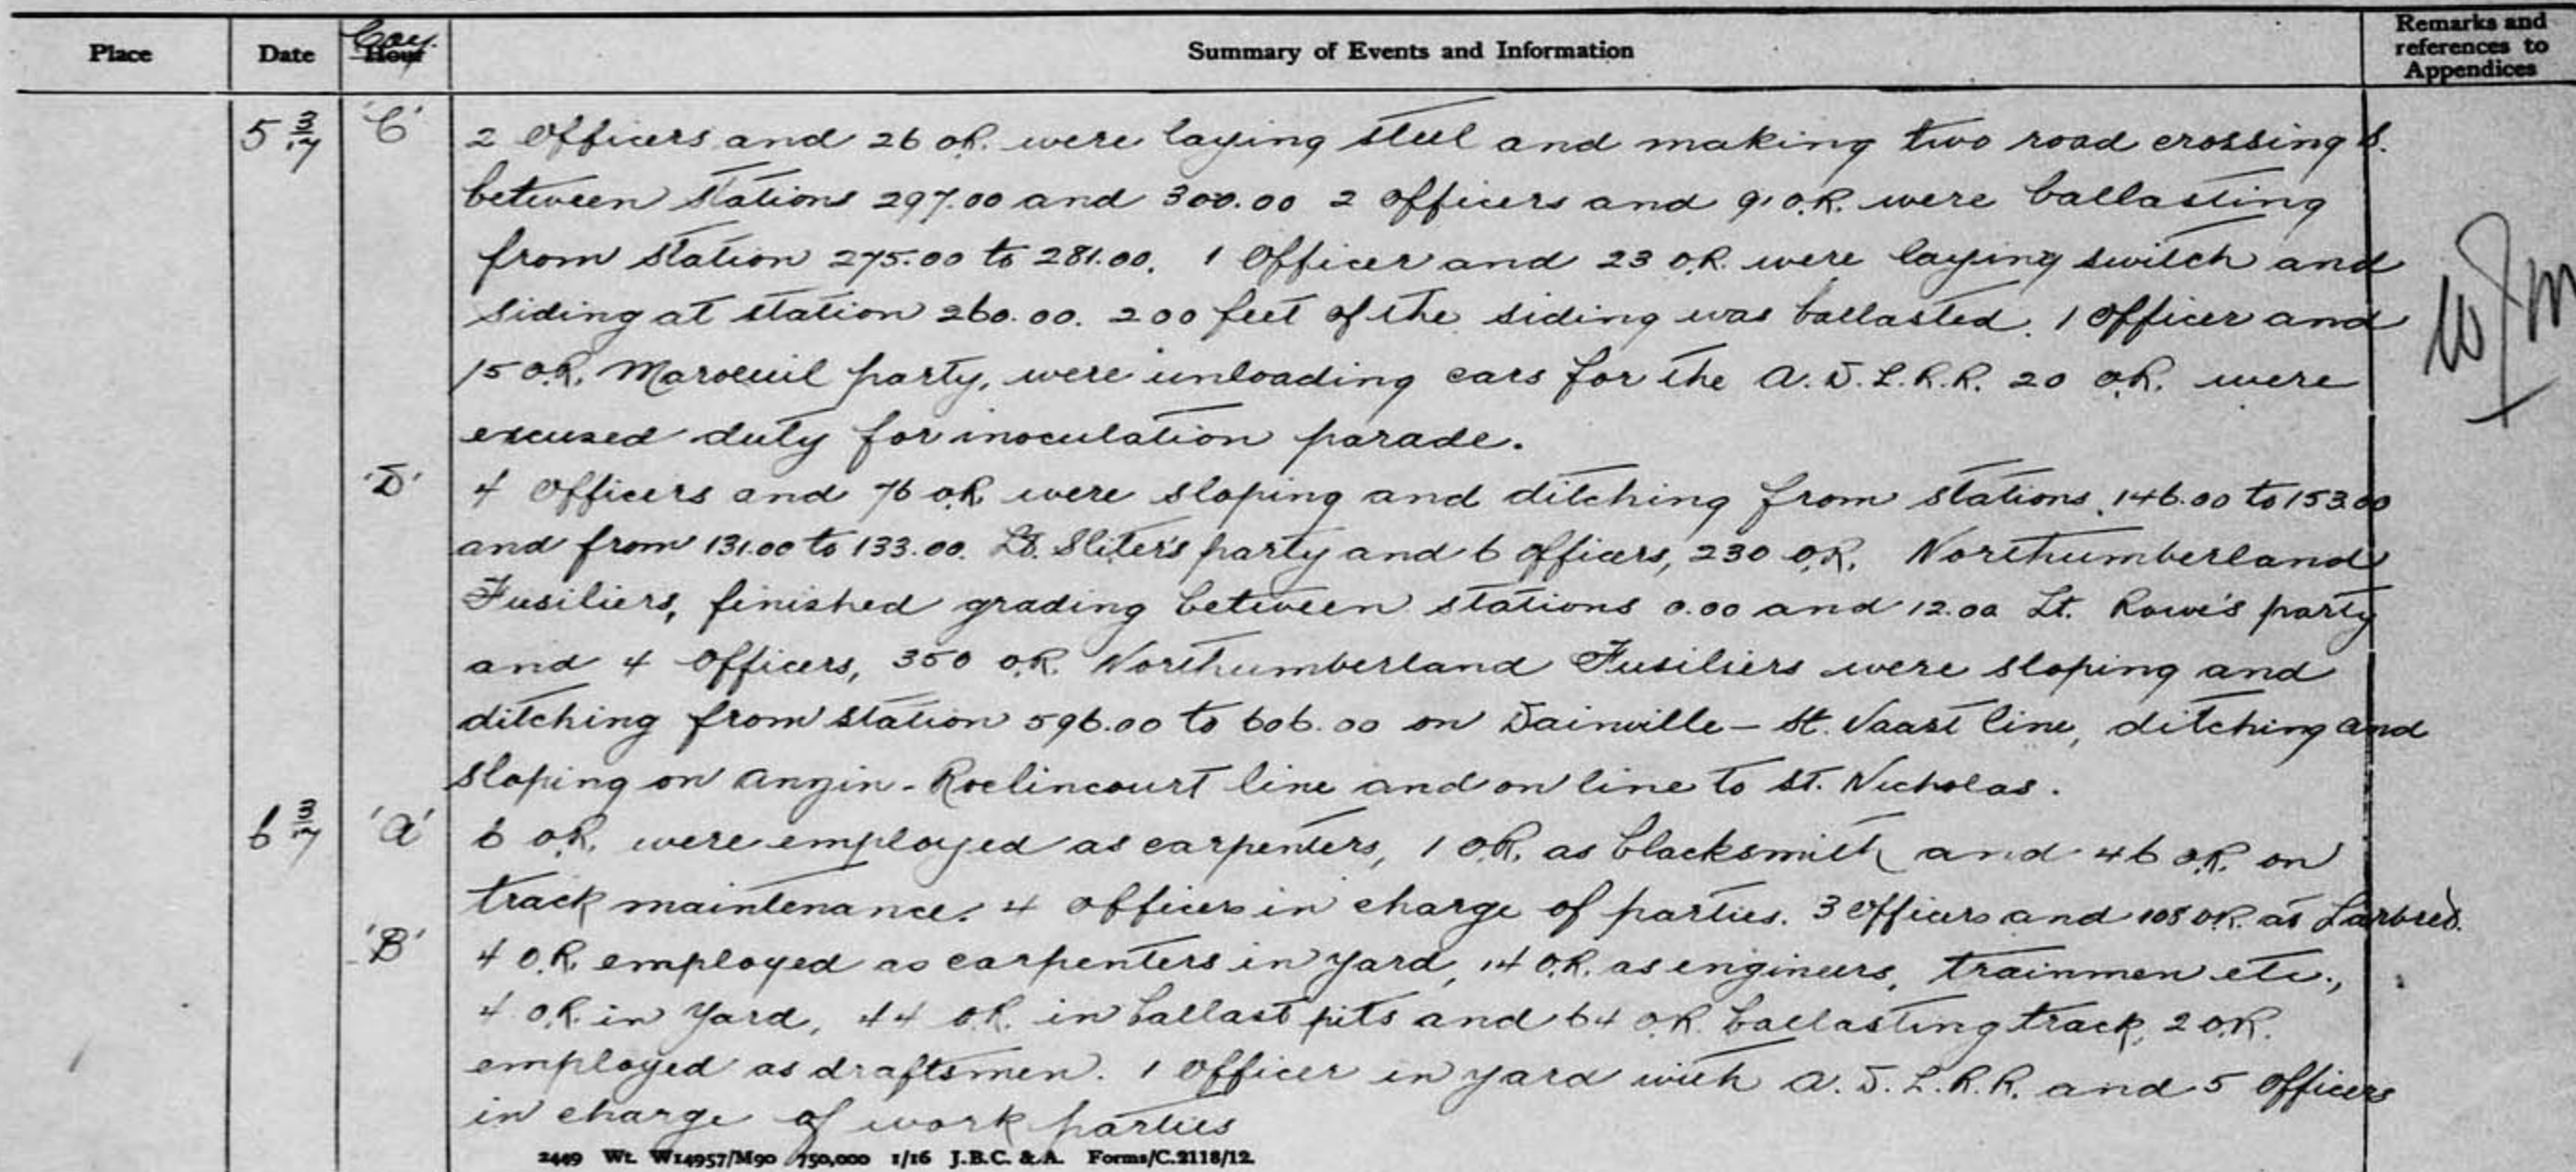 Place Date Hour Coy. Summary of Events and Information Remarks and references to Appendices
5 3/17 'C' 2 Officers and 26 O.R. were laying steel and making two road crossings.
between stations 297.00 and 300.00 2 officers and 91 O.R. were ballasting
from station 275.00 to 281.00. 1 Officer and 23 O.R. were laying switch and
siding at station 260.00. 200 feet of the siding was ballasted. 1 Officer and
15 O.R. Maroeuil party, were unloading cars for the A.D.L.R.R. 20 O.R. were
excused duty for inoculation parade.
'D' 4 Officers and 76 O.R. were sloping and ditching from stations 146.00 to 153.00
and from 131.00 to 133.00. Lt. Sliter's party and 6 officers, 230 O.R. Northumberland
Fusiliers, finished grading between stations 0.00 and 12.00 Lt. Rowe's party
and 4 Officers, 350 O.R. Northumberland Fusiliers were sloping and
ditching from station 596.00 to 606.00 on Dainville - St. Vaast line, ditching and
sloping on Anzin - Roclincourt line and on line to St. Nicholas.
6 3/17 'A' 6 O.R. were employed as carpenters, 1 O.R. as blacksmith and 46 O.R. on
track maintenance. 4 officers in charge of parties. 3 Officers and 108 O.R. at Larbred.
'B' 4 O.R. employed as carpenters in yard, 14 O.R. as engineers, trainmen etc.,
4 O.R. in Yard, 44 O.R. in ballast pits and 64 O.R. ballasting track, 2 O.R.
employed as draftsmen. 1 Officer in yard with A.D.L.R.R. and 5 Officers
in charge of work parties
2449 Wt. W14957/M90 750,000 1/16 J.B.C. & A. Forms/C.2118/12.